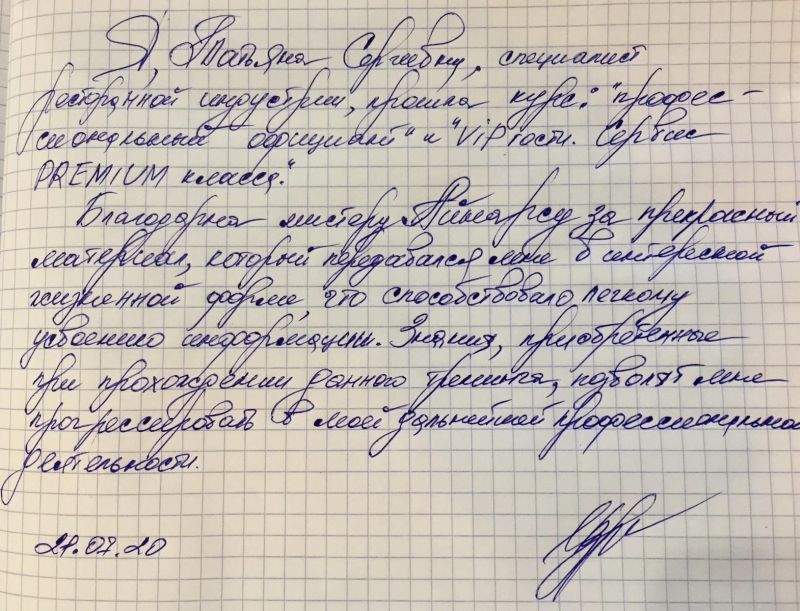 Я, Татьяна Сергеевна, специалист
ресторанной индустрии, прошла курс: "профес-
сиональный официант" и "ViP гости. Сервис
PREMIUM класса."
Благодарна мистеру Айнарсу за прекрасный
материал, который передавался мне в интересной
жизненной форме, что способствовало легкому
усвоению информации. Знания, приобретенные
при прохождении данного тренинга, позволят мне
прогрессировать в моей дальнейшей профессиональной
деятельности.
21.07.20